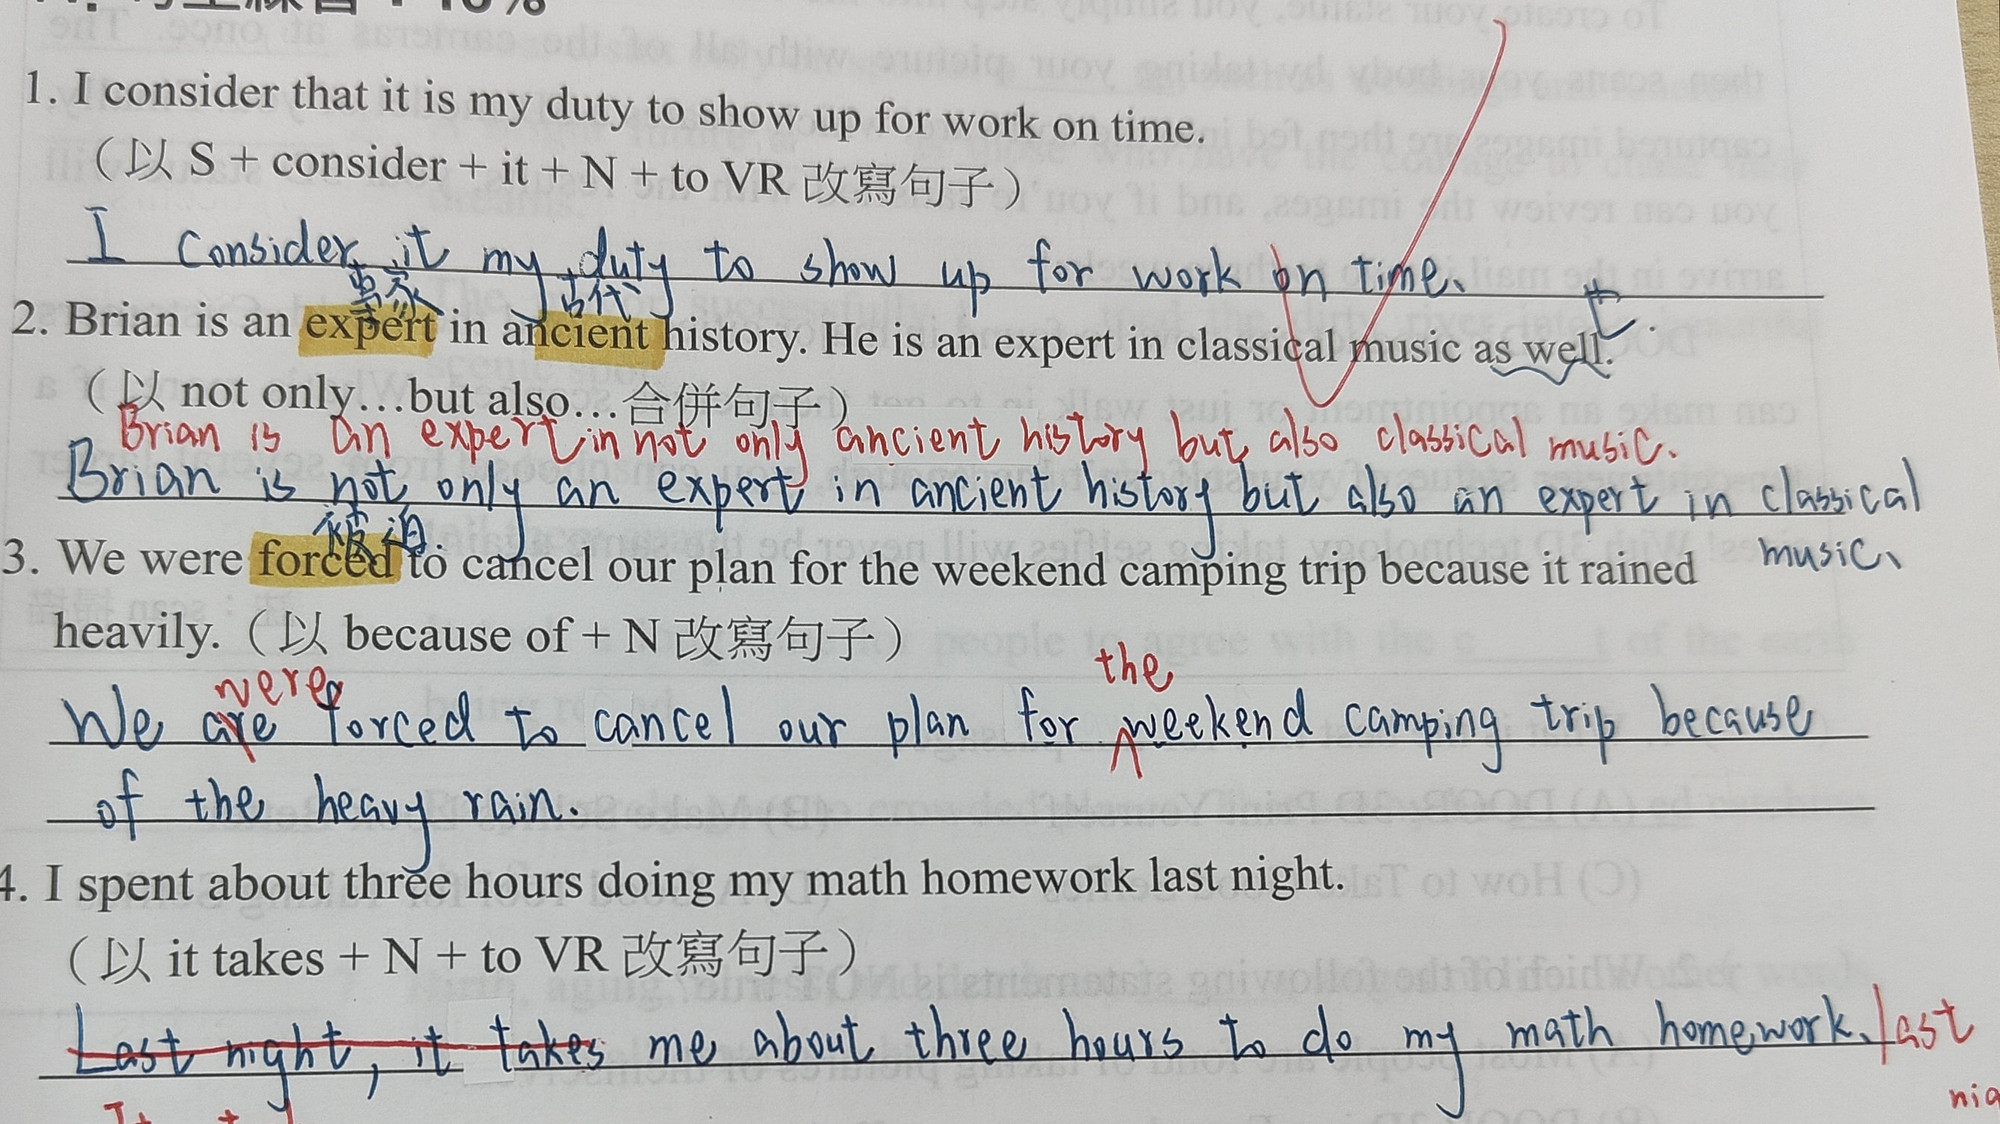 1. I consider that it is my duty to show up for work on time.
（以 S + consider + it + N + to VR 改寫句子）
I consider it my duty to show up for work on time.
專家 古代 也
2. Brian is an expert in ancient history. He is an expert in classical music as well.
（以 not only…but also…合併句子）
Brian is an expert in not only ancient history but also classical music.
Brian is not only an expert in ancient history but also an expert in classical
music.
被迫
3. We were forced to cancel our plan for the weekend camping trip because it rained
heavily.（以 because of + N 改寫句子）
were the
We are forced to cancel our plan for weekend camping trip because
of the heavy rain.
4. I spent about three hours doing my math homework last night.
（以 it takes + N + to VR 改寫句子）
Last night, it takes me about three hours to do my math homework. last